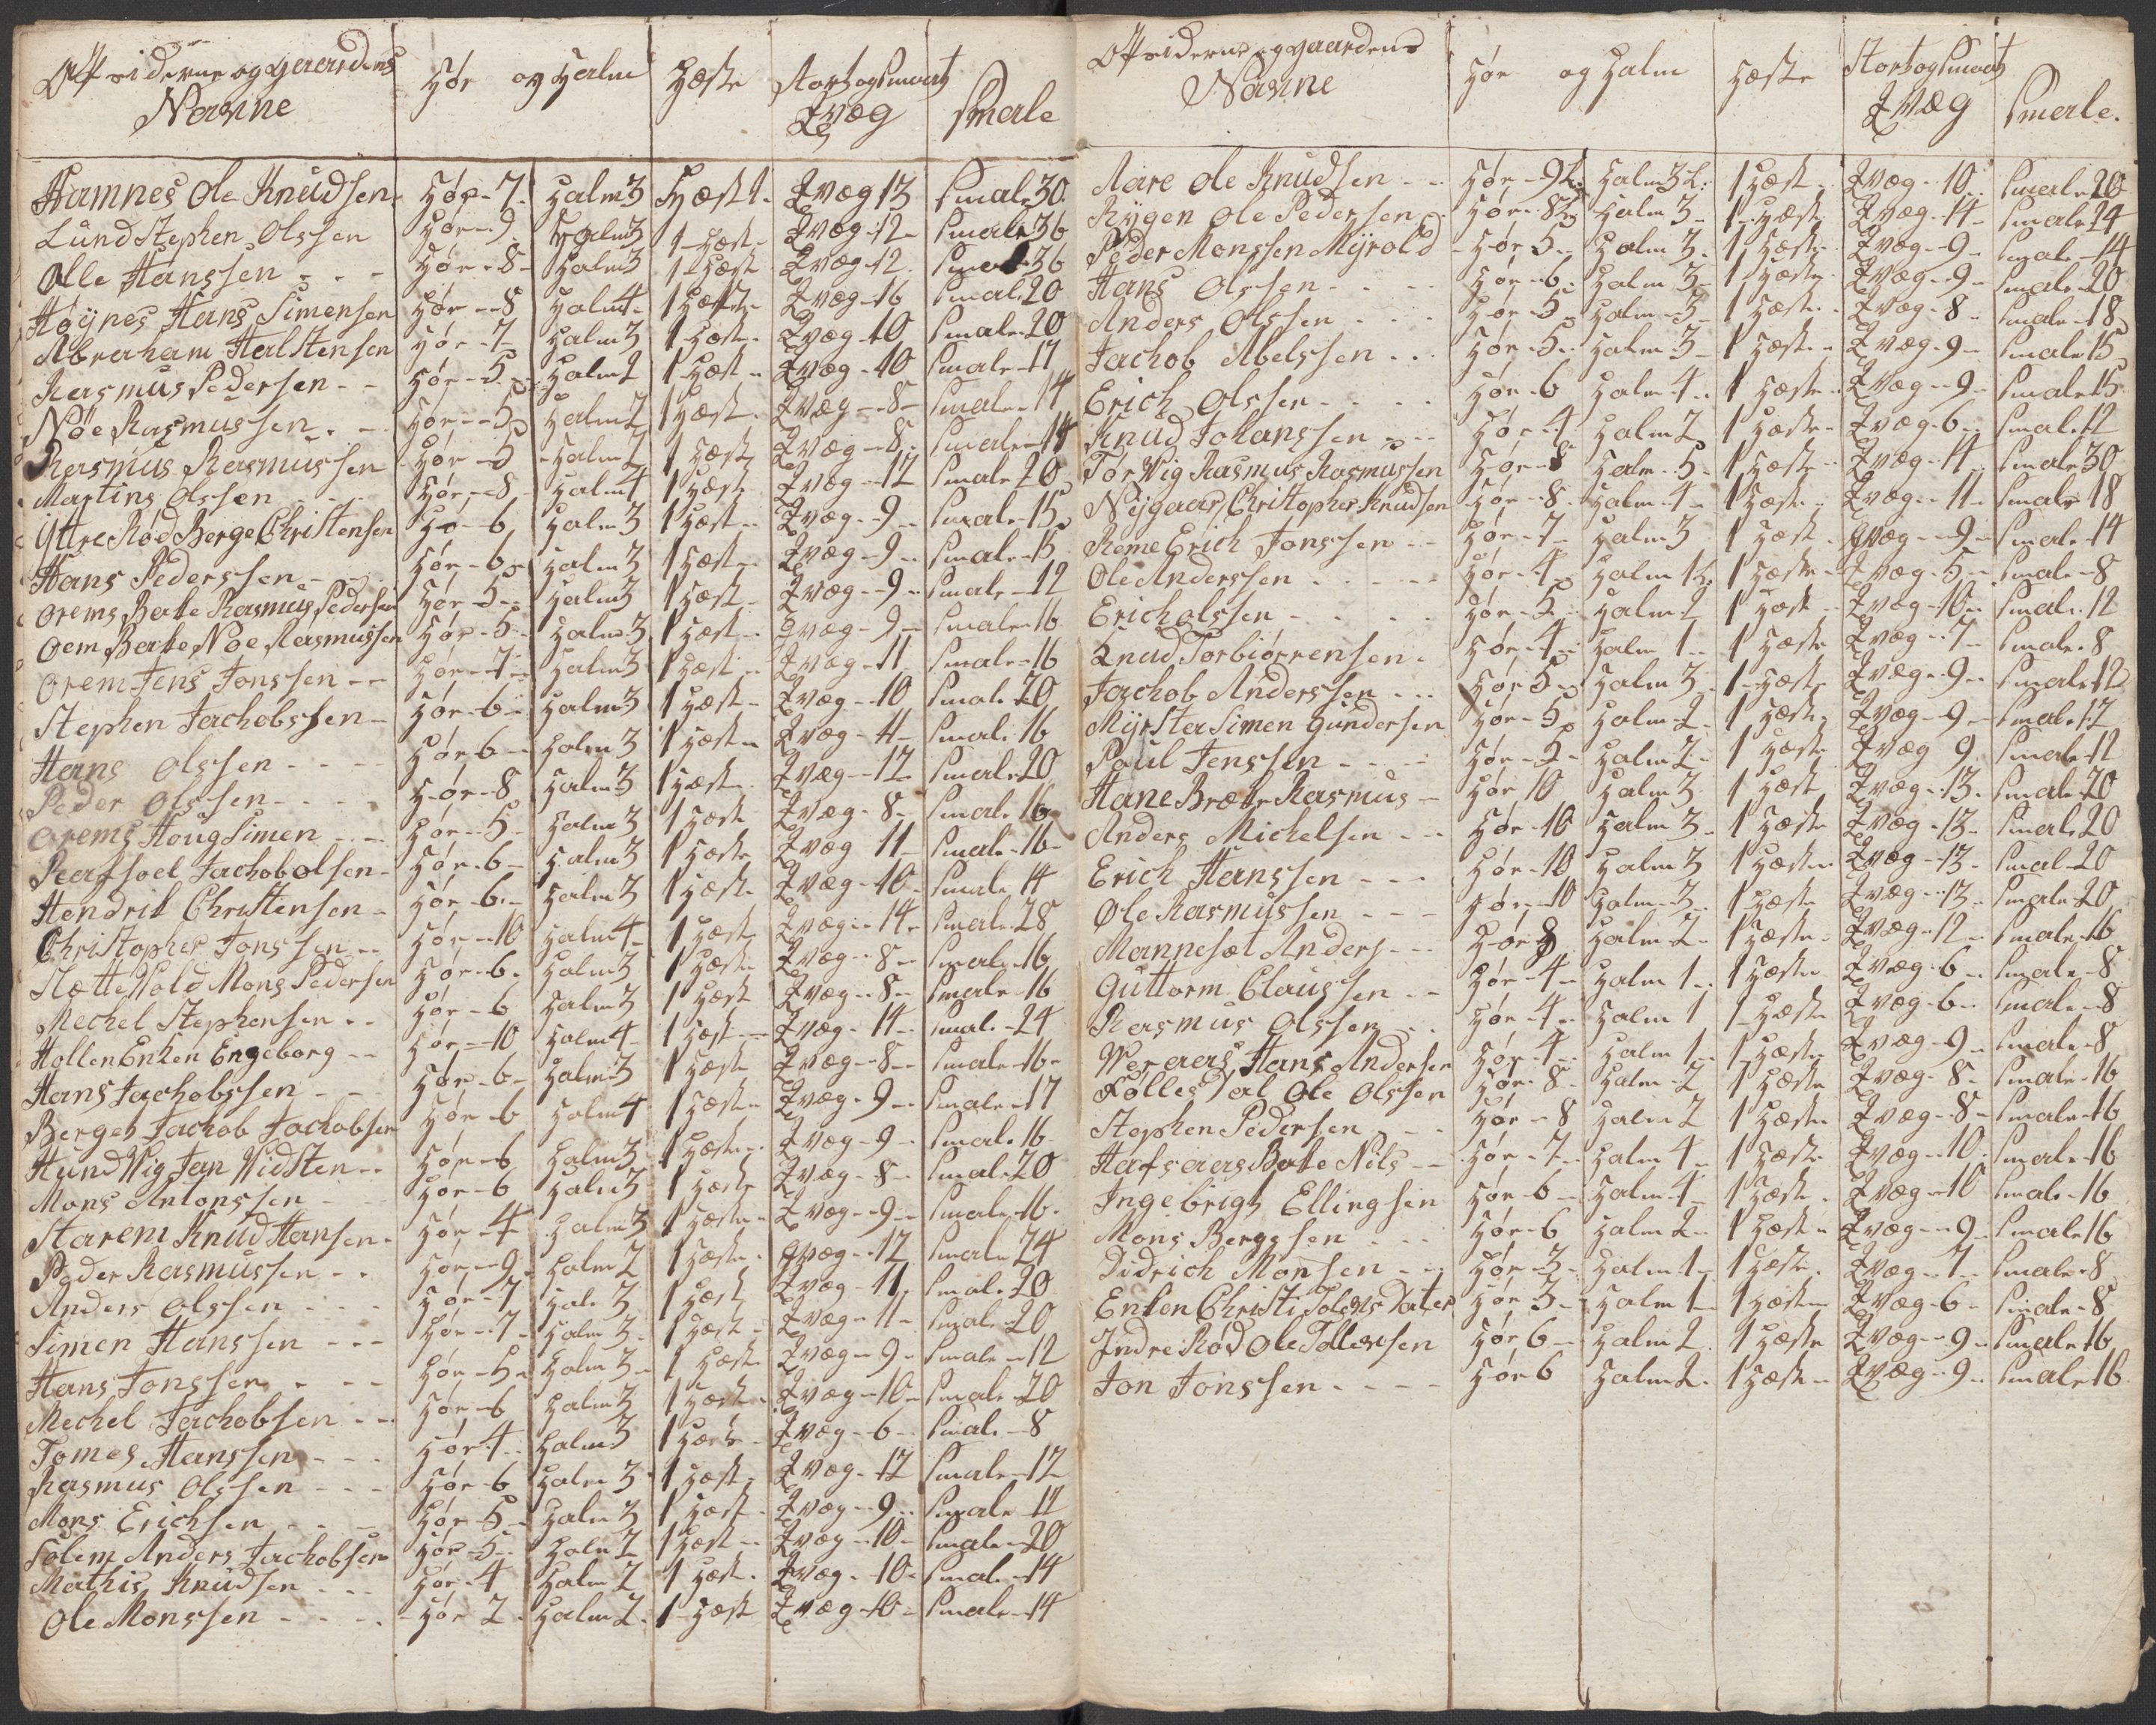 Opsiderne og gaardens Navne | Hør og Halm | Hæste | Stort og Smaat Qvæg | Smale
Hamnes Ole Knudsen | Hør - 7 | Halm 3 | Hæst 1 | Qvæg 13 | Smale 30
Lund Stephen Olssen | Hør - 9 | Halm 3 | 1 Hæst | Qvæg - 12 | Smale 36
Olle Hanssen | Hør - 8 | Halm 3 | 1 Hæst | Qvæg - 12 | Smale 36
Høÿnes Hans Simensen | Hør - 8 | Halm 4 | 1 Hæst | Qvæg - 16 | Smale 20
Abraham Halstensen | Hør - 7 | Halm 3 | 1 Hæst | Qvæg - 10 | Smale 20
Rasmus Pedersen | Hør - 5 | Halm 2 | 1 Hæst | Qvæg - 10 | Smale - 17
Nöe Rasmussen | Hør - 5 | Halm 2 | 1 Hæst | Qvæg - 8 | Smale - 14
Rasmus Rasmussen | Hør - 5 | Halm 2 | 1 Hæst | Qvæg - 8 | Smale - 14
Martins Olssen | Hør - 8 | Halm 4 | 1 Hæst | Qvæg - 12 | Smale 20
Ÿttre Rød Berge Christensen | Hør - 6 | Halm 3 | 1 Hæst | Qvæg - 9 | Smale - 15
Hans Pederssen | Hør - 6 | Halm 3 | 1 Hæst | Qvæg - 9 | Smale - 15
Orems Bake Rasmus Pedersen | Hør - 5 | Halm 3 | 1 Hæst | Qvæg - 9 | Smale - 12
Oem Bake Noe Rasmussen | Hør - 5 | Halm 3 | 1 Hæst | Qvæg - 9 | Smale - 16
Orem Jens Jonssen | Hør - 7 | Halm 3 | 1 Hæst | Qvæg - 11 | Smale - 16
Stephen Jachobssen | Hør - 6 | Halm 3 | 1 Hæst | Qvæg - 10 | Smale 20
Hans Olssen | Hør - 6 | Halm 3 | 1 Hæst | Qvæg - 11 | Smale 16
Peder Olssen | Hør - 8 | Halm 3 | 1 Hæst | Qvæg - 12 | Smale 20
Orems Houg Simen | Hør - 5 | Halm 3 | 1 Hæst | Qvæg - 8 | Smale 16
Rafsoel Jachob Olsen | Hør - 6 | Halm 3 | 1 Hæste | Qvæg 11 | Smale - 16
Hendrik Christensen | Hør - 6 | Halm 3 | 1 Hæst | Qvæg - 10 | Smale 14
Christopher Jonssen | Hør - 10 | Halm 4 | 1 Hæst | Qvæg - 14 | Smale 28
Slette Vold Mons Pedersen | Hør - 6 | Halm 3 | 1 Hæst | Qvæg - 8 | Smale 16
Mechel Stephensen | Hør - 6 | Halm 3 | 1 Hæst | Qvæg - 8 | Smale 16
Hollen Enken Engeborg | Hør - 10 | Halm 4 | 1 Hæst | Qvæg - 14 | Smale - 24
Hans Jachobssen | Hør - 6 | Halm 3 | 1 Hæst | Qvæg - 8 | Smale - 16
Berget Jachob Jachobsen | Hør - 6 | Halm 4 | 1 Hæst | Qvæg - 9 | Smale - 17
Hund Vig Jan Vidsten | Hør - 6 | Halm 3 | 1 Hæst | Qvæg - 9 | Smale 16
Mons Antonssen | Hør - 6 | Halm 3 | 1 Hæst | Qvæg - 8 | Smale 20
Starem Knud Hansen | Hør - 4 | Halm 3 | 1 Hæst | Qvæg - 9 | Smale 16
Peder Rasmussen | Hør - 9 | Halm 2 | 1 Hæst | Qvæg - 12 | Smale 24
Anders Olssen | Hør - 7 | Halm 3 | 1 Hæst | Qvæg - 11 | Smale 20
Simen Hanssen | Hør - 7 | Halm 3 | 1 Hæst | Qvæg - 11 | Smale 20
Hans Jonssen | Hør - 5 | Halm 3 | 1 Hæst | Qvæg - 9 | Smale - 12
Mechel Jachobsen | Hør - 6 | Halm 3 | 1 Hæst | Qvæg - 10 | Smale 20
Tomes Hanssen | Hør 4 | Halm 3 | 1 Hæst | Qvæg - 6 | Smale - 8
Rasmus Olssen | Hør - 6 | Halm 3 | 1 Hæst | Qvæg - 12 | Smale - 12
Mons Erichsen | Hør - 5 | Halm 3 | 1 Hæst | Qvæg - 9 | Smale 12
Solem Anders Jachobsen | Hør - 5 | Halm 2 | 1 Hæst | Qvæg - 10 | Smale - 20
Mathis Knudsen | Hør - 4 | Halm 2 | 1 Hæst | Qvæg - 10 | Smale - 14
Ole Monssen | Hør 2 | Halm 2 | 1 Hæst | Qvæg - 10 | Smale - 14
Opsiderne og gaardens Navne | Hør og Halm | Hæste | Stort og Smaat Qvæg | Smale.
Aare Ole Knudsen | Hør - 9 L | Halm 3 L | 1 Hæst | Qvæg - 10 | Smale 20
Rÿgen Ole Pedersen | Hør - 8 | Halm 3 | 1 Hæst | Qvæg - 11 | Smale 24
Peder Monssen Mÿrold | Hør 5 | Halm 3 | 1 Hæst | Qvæg - 9 | Smale - 14
Hans Olssen | Hør - 6 | Halm 3 | 1 Hæst | Qvæg - 9 | Smale - 20
Anders Olssen | Hør - 5 | Halm - 3 | 1 Hæst | Qvæg - 8 | Smale - 18
Jachob Abelssen | Hør - 5 | Halm 3 | 1 Hæst | Qvæg - 9 | Smale 15
Erich Olssen | Hør - 6 | Halm 4 | 1 Hæst | Qvæg - 9 | Smale 15
Knud Johanssen | Hør 4 | Halm 2 | 1 Hæst | Qvæg - 6 | Smale 12
Tør Vig Rasmus Rasmussen | Hør - 8 | Halm - 5 | 1 Hæst | Qvæg - 14 | Smale 30
Nÿgaar Christopher Knudsen | Hør - 8 | Halm - 4 | 1 Hæst | Qvæg - 11 | Smale 18
Reme Erich Jonssen | Hør - 7 | Halm 3 | 1 Hæst | Qvæg - 9 | Smale 14
Ole Anderssen | Hør - 4 | Halm 1 | 1 Hæst | Qvæg - 5 | Smale - 8
Erich Olssen | Hør - 5 | Halm 2 | 1 Hæst | Qvæg - 10 | Smale 12
Knud Torbiørrensen | Hør - 4 | Halm 1 | 1 Hæst | Qvæg - 7 | Smale 8
Jachob Anderssen | Hør 5 | Halm 3 | 1 Hæst | Qvæg - 9 | Smale 12
Mÿrster Simen Gundersen | Hør - 5 | Halm 2 | 1 Hæst | Qvæg - 9 | Smale 12
Poul Jenssen | Hør - 5 | Halm 2 | 1 Hæst | Qvæg 9 | Smale 12
Hane Bræke Rasmus | Hør 10 | Halm 3 | 1 Hæst | Qvæg - 13 | Smale 20
Anders Michelsen | Hør - 10 | Halm 3 | 1 Hæst | Qvæg - 13 | Smale 20
Erich Hanssen | Hør - 10 | Halm 3 | 1 Hæst | Qvæg - 13 | Smale 20
Ole Rasmussen | Hør - 10 | Halm 3 | 1 Hæst | Qvæg - 13 | Smale 20
Mannesæt Anders | Hør 8 | Halm 2 | 1 Hæst | Qvæg - 12 | Smale 16
Guttorm Claussen | Hør - 4 | Halm 1 | 1 Hæst | Qvæg - 6 | Smale - 8
Rasmus Olssen | Hør - 4 | Halm 1 | 1 Hæst | Qvæg - 6 | Smale - 8
Weraas Hans Andersen | Hør - 4 | Halm 1 | 1 Hæst | Qvæg - 9 | Smale - 8
Følles Dal Ole Olssen | Hør - 8 | Halm 2 | 1 Hæst | Qvæg - 8 | Smale - 16
Stephen Pedersen | Hør - 8 | Halm 2 | 1 Hæst | Qvæg - 8 | Smale 16
Hafsaas Bake Nils | Hør - 7 | Halm 4 | 1 Hæst | Qvæg - 10 | Smale - 16
Ingebrigt Ellingsen | Hør - 6 | Halm 4 | 1 Hæst | Qvæg - 10 | Smale - 16
Mons Bergssen | Hør - 6 | Halm 2 | 1 Hæst | Qvæg - 9 | Smale 16
Didrich Monsen | Hør - 3 | Halm 1 | 1 Hæst | Qvæg - 7 | Smale - 8
Enken Christi Tolens Dater | Hør - 3 | Halm 1 | 1 Hæst | Qvæg - 6 | Smale - 8
Indre Rød Ole Tollensen | Hør 6 | Halm 2 | 1 Hæst | Qvæg - 9 | Smale 16
Jon Jonssen | Hør 6 | Halm 2 | 1 Hæst | Qvæg - 9 | Smale 16